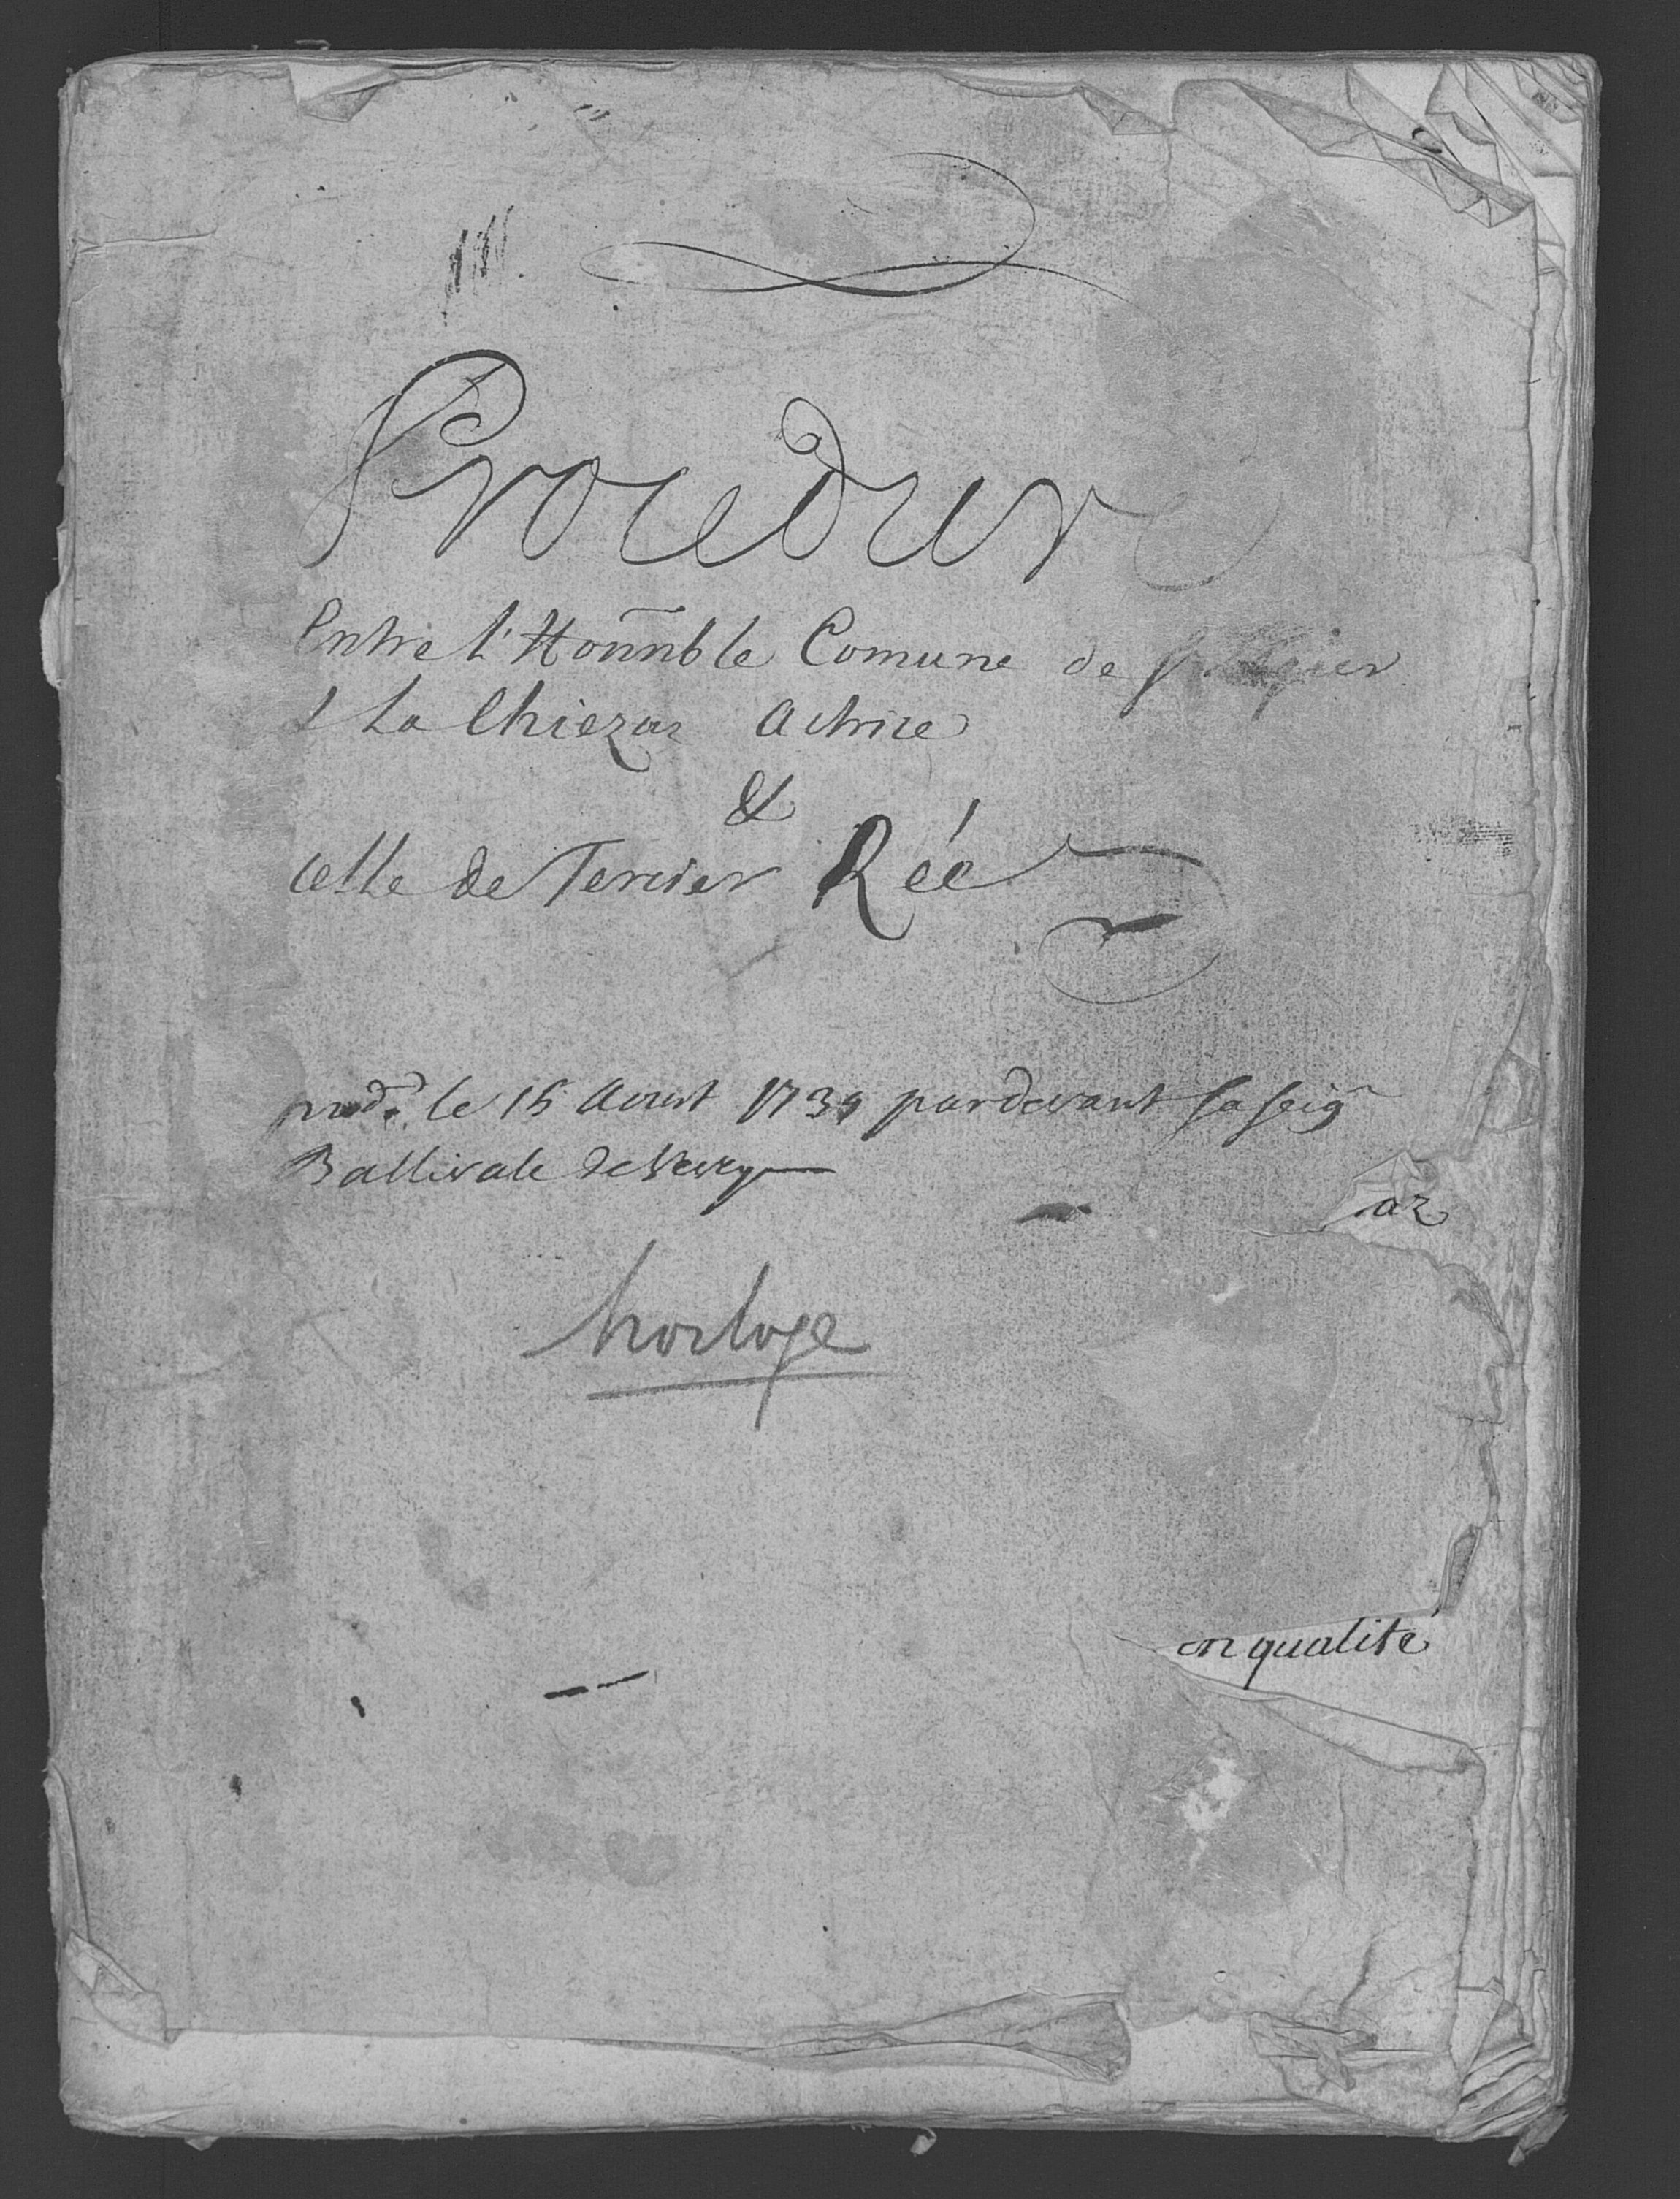 Procedure
Entre l'Hon̄nble Comune de St. Legier
& La Chiezaz Actrice
&
celle de Tercier Rée
prod. le 15 Aoust 1739 pardevant sa seig
Ballivale de Vevey
az
horloge
en qualité